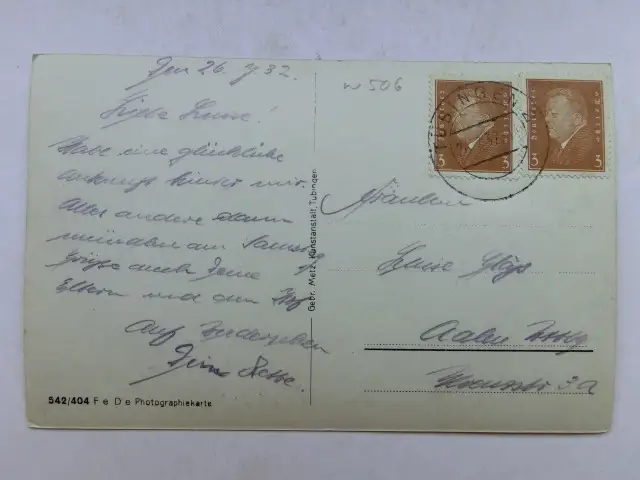 Den 26. 7. 32.
Liebe Luise!
Habe eine glückliche
Ankunft hinter mir.
Alles andere dann
mündlich am Samstag
Grüße auch Deine
Eltern und den
Auf Wiedersehen
Deine
542/404 F e D e Photographiekarte
Gebr. Metz, Kunstanstalt, Tübingen
W 506
TÜBINGEN
Deutsches Reich
3 3
Deutsches Reich
3 3
Fräulein
Luise
Aalen Wttbg
3a